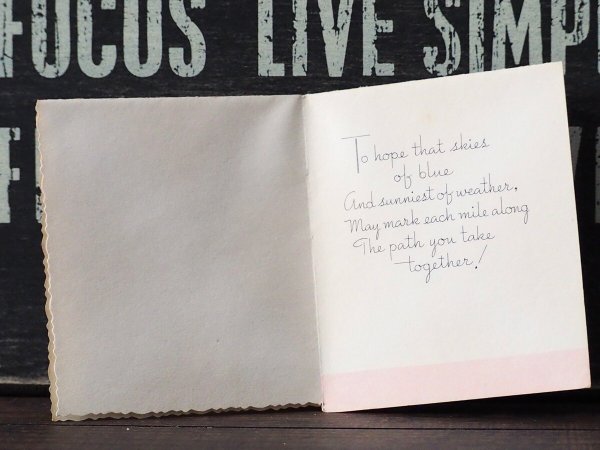 FOCUS LIVE SIMPL
To hope that skies
of blue
And sunniest of weather,
May mark each mile along
The path you take
together!